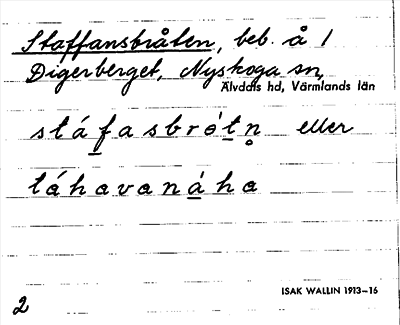 Staffansbråten, beb. å 1
Digerberget, Nyskoga sn,
Älvdals hd, Värmlands län
stáfasbrót̲n̥ eller
táhavanáha
2
ISAK WALLIN 1913–16